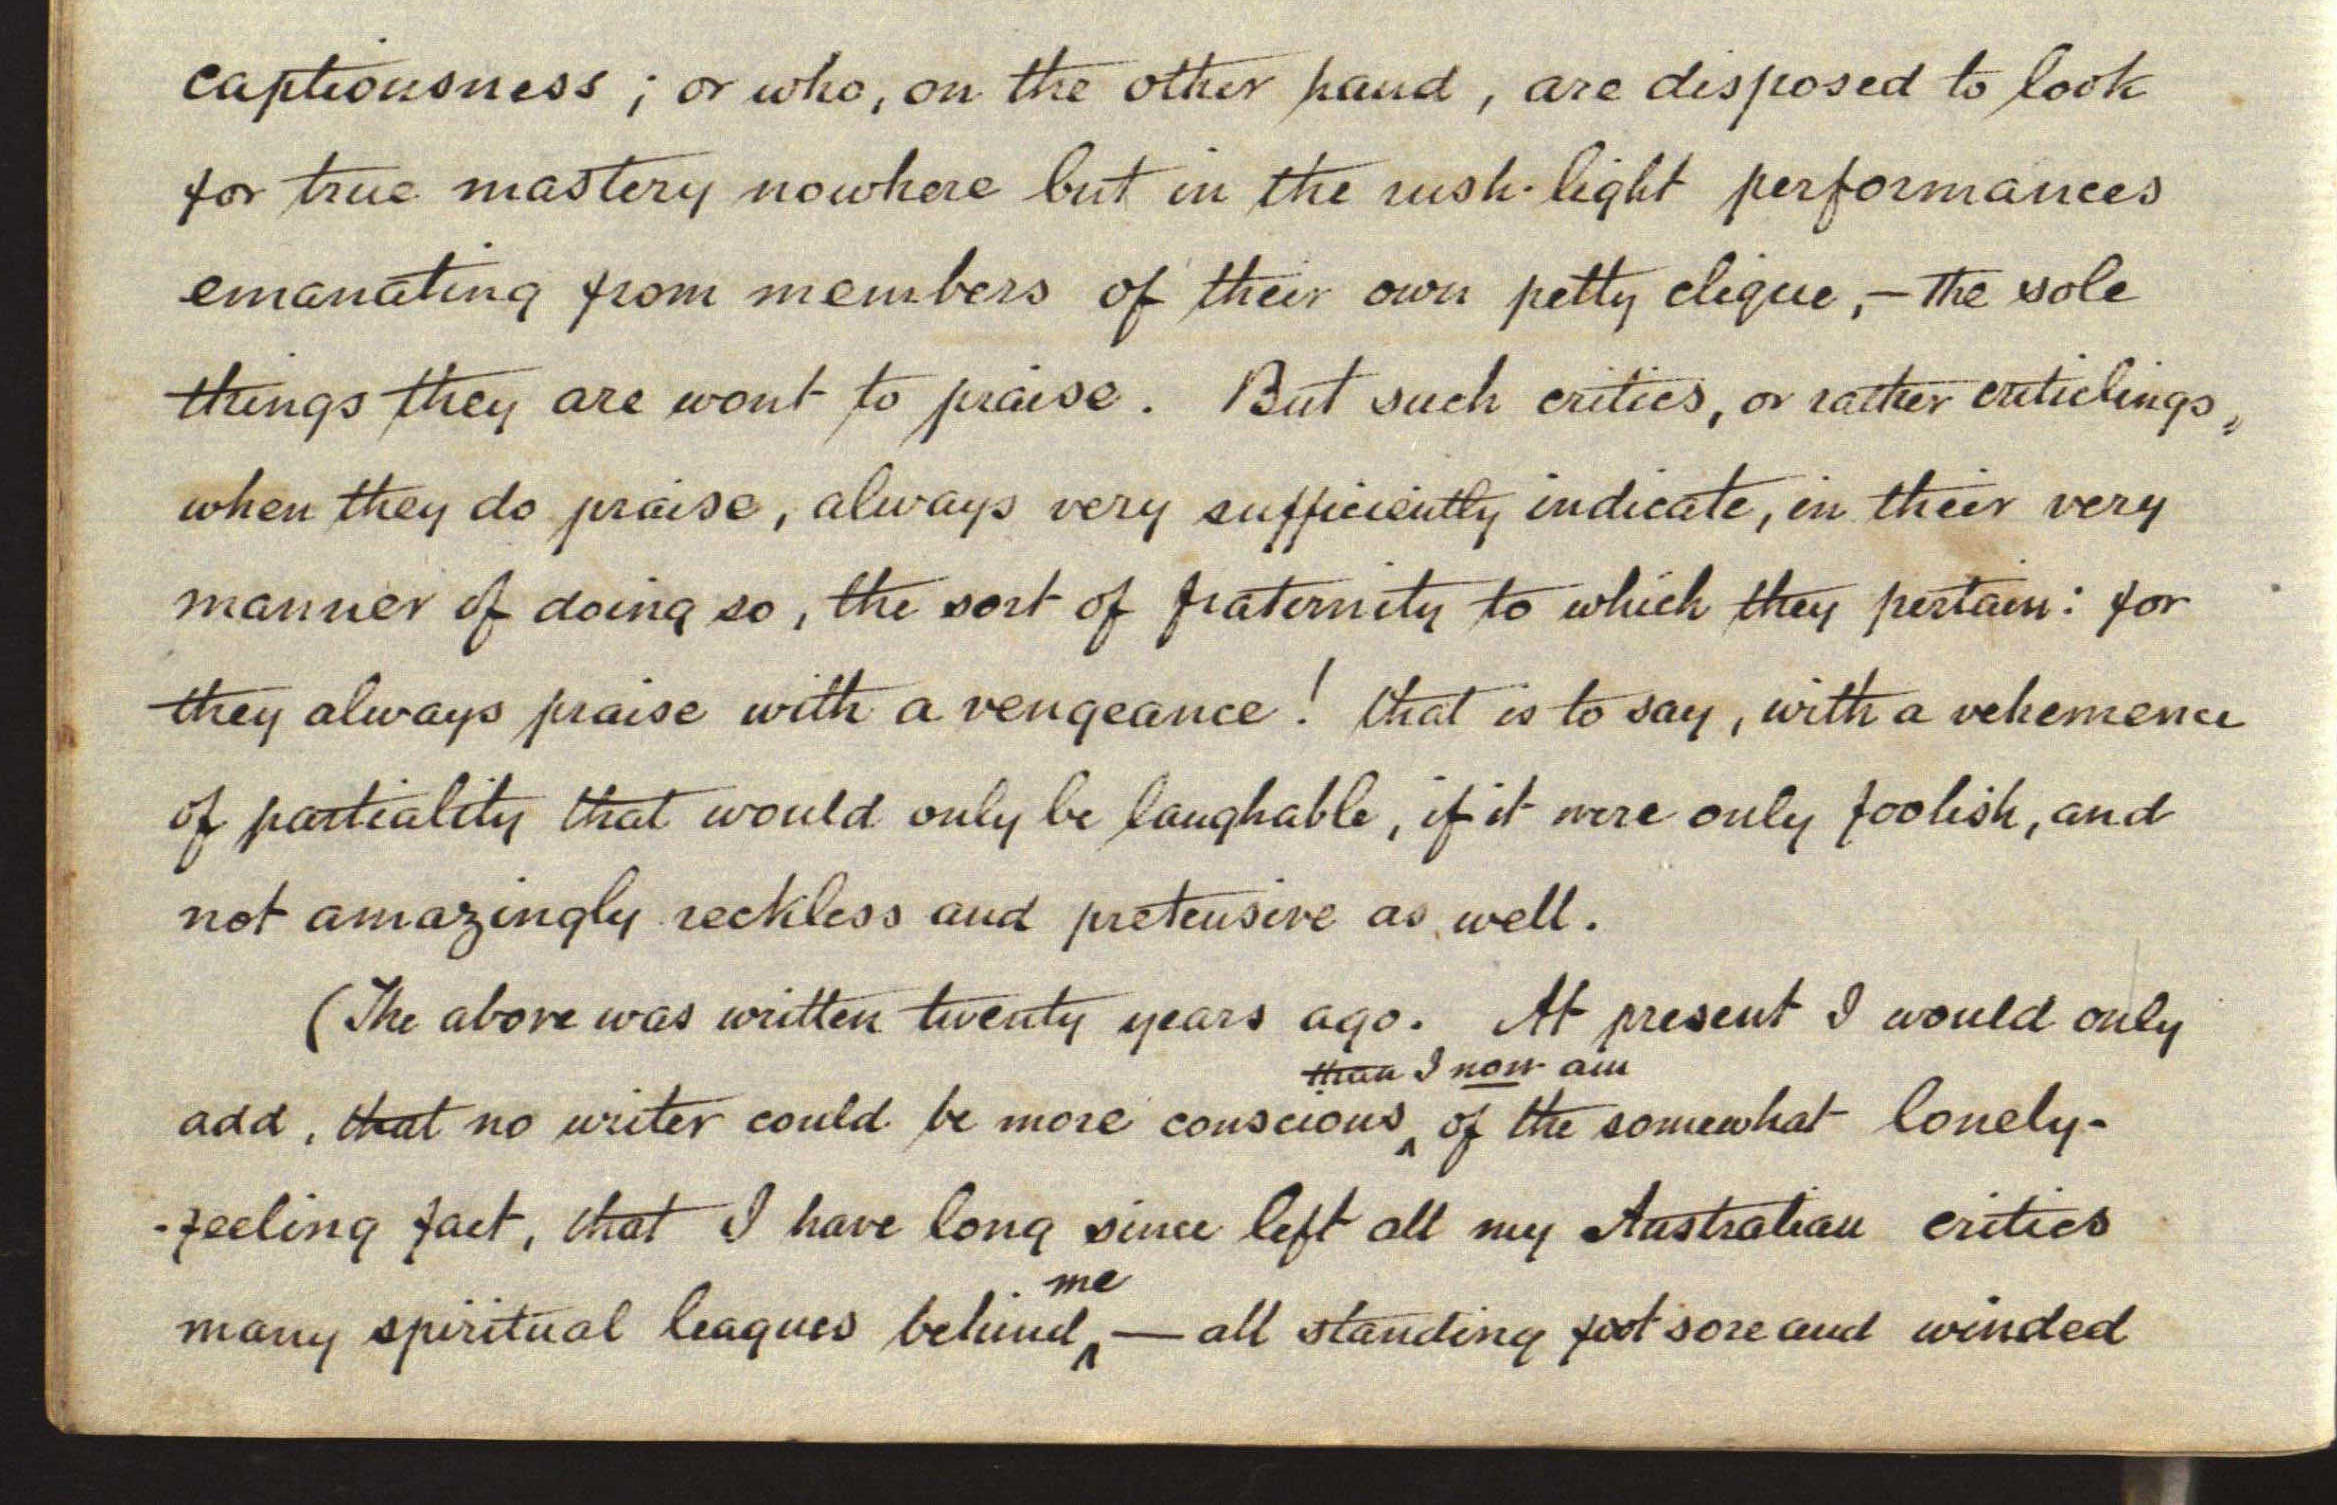 captiousness; or who, on the other hand, are disposed to look
for true mastery nowhere but in the rush-light performances
emanating from members of their own petty clique,— the sole
things they are wont to praise. But such critics, or rather criticlings,
when they do praise, always very sufficiently indicate, in their very
manner of doing so, the sort of fraternity to which they pertain: for
they always praise with a vengeance! that is to say, with a vehemence
of partiality that would only be laughable, if it were only foolish, and
not amazingly reckless and pretensive as well.
(The above was written twenty years ago. At present I would only
than I now am
add, that no writer could be more conscious of the somewhat lonely-
-feeling fact, that I have long since left all my Australian critics
me
many spiritual leagues behind,— all standing footsore and winded